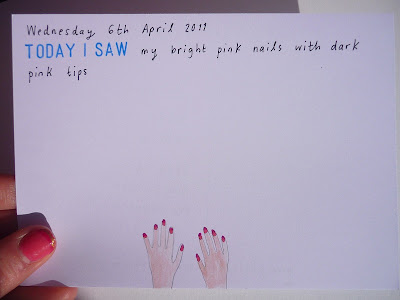 Wednesday 6th April 2011
TODAY I SAW my bright pink nails with dark
pink tips